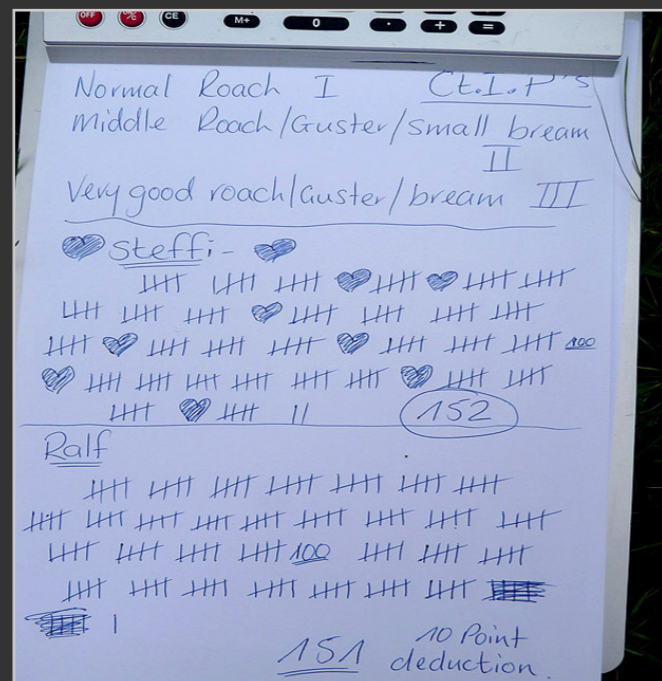 OFF CE M+ 0 · + =
Normal Roach I Ct.I.P's
Middle Roach/Guster/small bream
II
Very good roach/Guster/bream III
Steffi-
100
152
Ralf
100
151 10 Point
deduction.